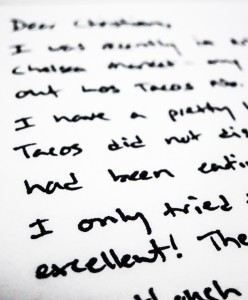 Dear Christian,
I was recently in
Chelsea Market
out Los Tacos No.
I have a pretty
Tacos did not
had been
I only tried
excellent! The